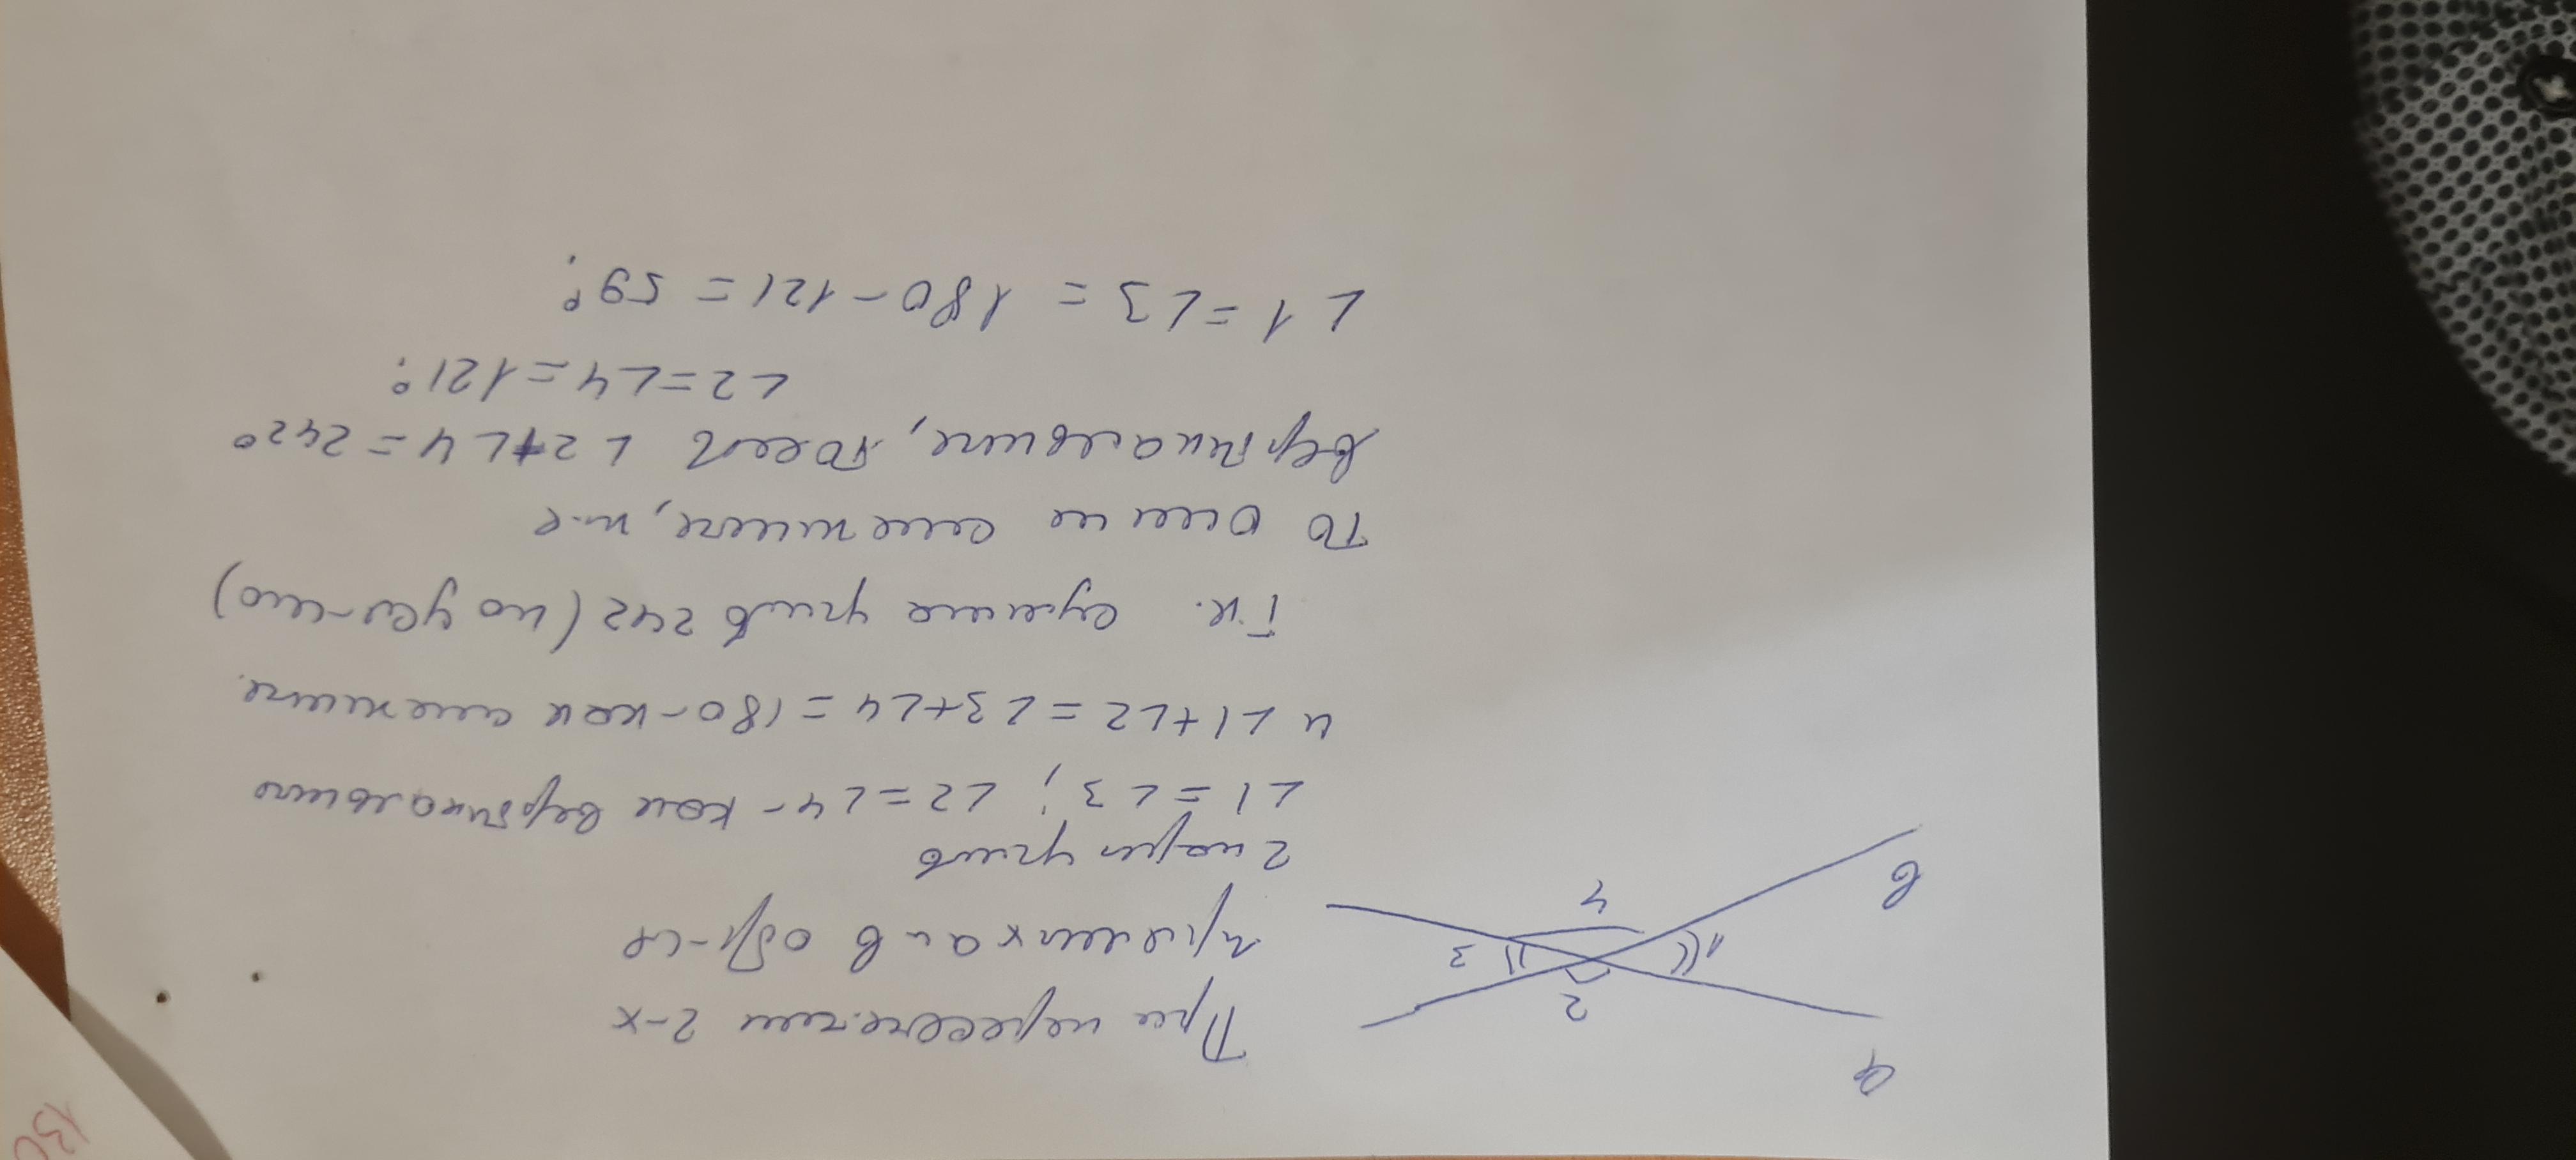 a
2
1
3
4
в
При пересечении 2-х
прямых а и в обр-ся
2 пары углов
∠1 = ∠3; ∠2 = ∠4 - как вертикальные
и ∠1+∠2 = ∠3+∠4 = 180 - как смежные.
Т.к. сумма углов 242 (по усл-ию)
то они не смежные, т.е
вертикальные, ∠2+∠4 = 242°
∠2=∠4=121°;
∠1=∠3 = 180-121 = 59°;
130